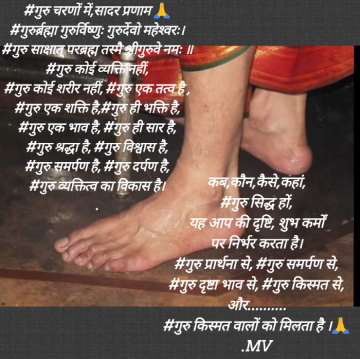 #गुरु चरणों में,सादर प्रणाम 🙏
#गुरुर्ब्रह्मा गुरुर्विष्णुः गुरुर्देवो महेश्वरः।
#गुरु साक्षात् परब्रह्म तस्मै श्रीगुरुवे नमः ॥
#गुरु कोई व्यक्ति नहीं,
#गुरु कोई शरीर नहीं, #गुरु एक तत्व है ,
#गुरु एक शक्ति है,#गुरु ही भक्ति है,
#गुरु एक भाव है, #गुरु ही सार है,
#गुरु श्रद्धा है, #गुरु विश्वास है,
#गुरु समर्पण है, #गुरु दर्पण है,
#गुरु व्यक्तित्व का विकास है।
.
कब,कौन,कैसे,कहां,
#गुरु सिद्ध हों,
यह आप की दृष्टि, शुभ कर्मों
पर निर्भर करता है।
#गुरु प्रार्थना से, #गुरु समर्पण से,
#गुरु दृष्टा भाव से, #गुरु किस्मत से,
और..........
#गुरु किस्मत वालों को मिलता है ।🙏
.MV